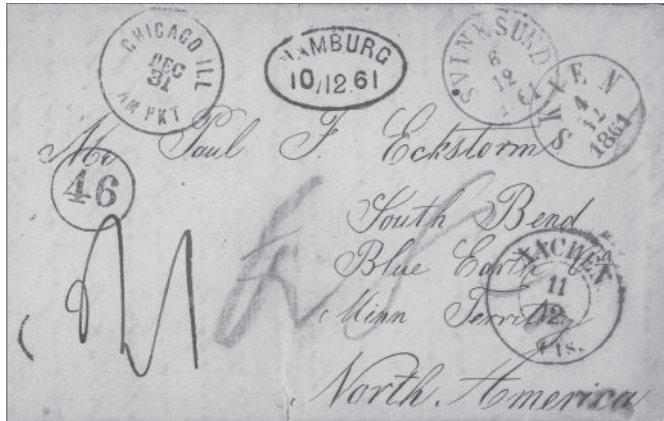 CHICAGO ILL
DEC
31
AM PKT
HAMBURG
10/12.61
SVINESUND
6
12
1861
SKIEN
4
12
1861
Mr Paul F. Eckstorm
46
South Bend
Blue Earth
Minn Territory
AACHEN
11
12
North. America